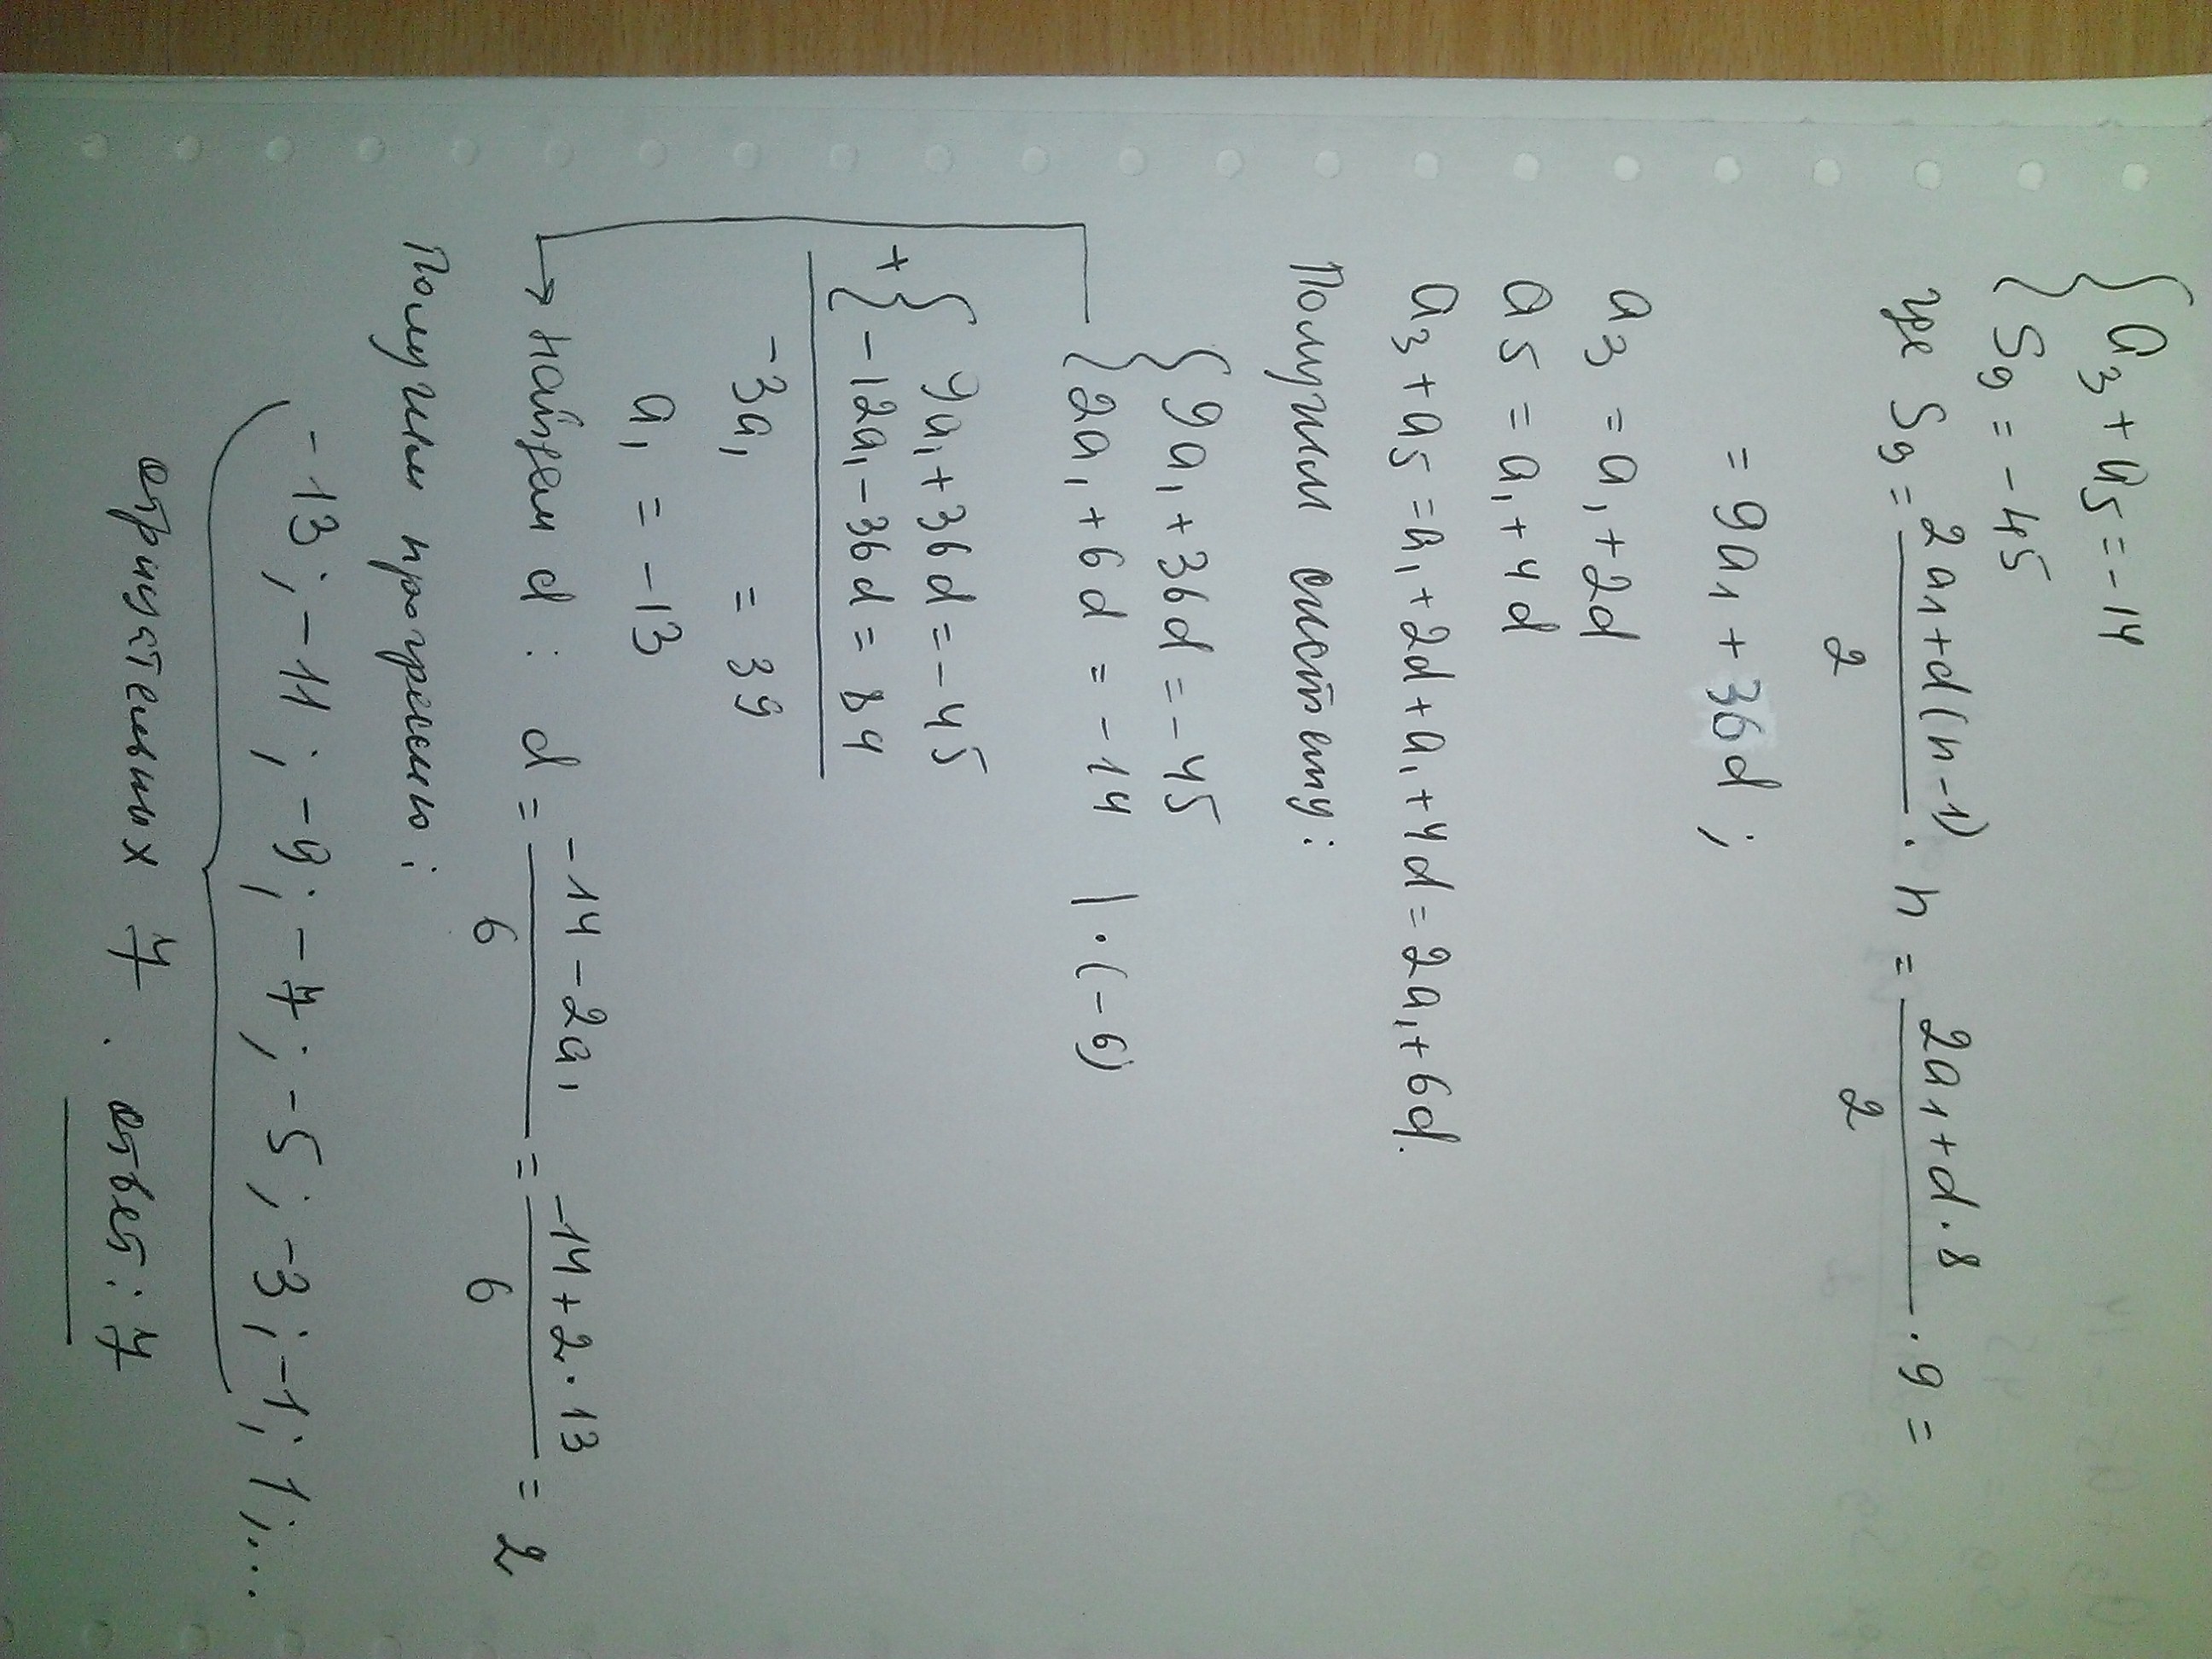 { a₃ + a₅ = -14
{ S₉ = -45
где S₉ = (2a₁+d(n-1))/2 · n = (2a₁+d·8)/2 · 9 =
= 9a₁ + 36d ;
a₃ = a₁ + 2d
a₅ = a₁ + 4d
a₃ + a₅ = a₁ + 2d + a₁ + 4d = 2a₁ + 6d.
Получим систему:
{ 9a₁ + 36d = -45
{ 2a₁ + 6d = -14 | · (-6)
+ { 9a₁ + 36d = -45
{ -12a₁ - 36d = 84
-3a₁ = 39
a₁ = -13
→ найдем d : d = (-14 - 2a₁)/6 = (-14 + 2·13)/6 = 2
Получим прогрессию:
-13 ; -11 ; -9 ; -7 ; -5 ; -3 ; -1 ; 1 ; ...
отрицательных 7 . ответ: 7